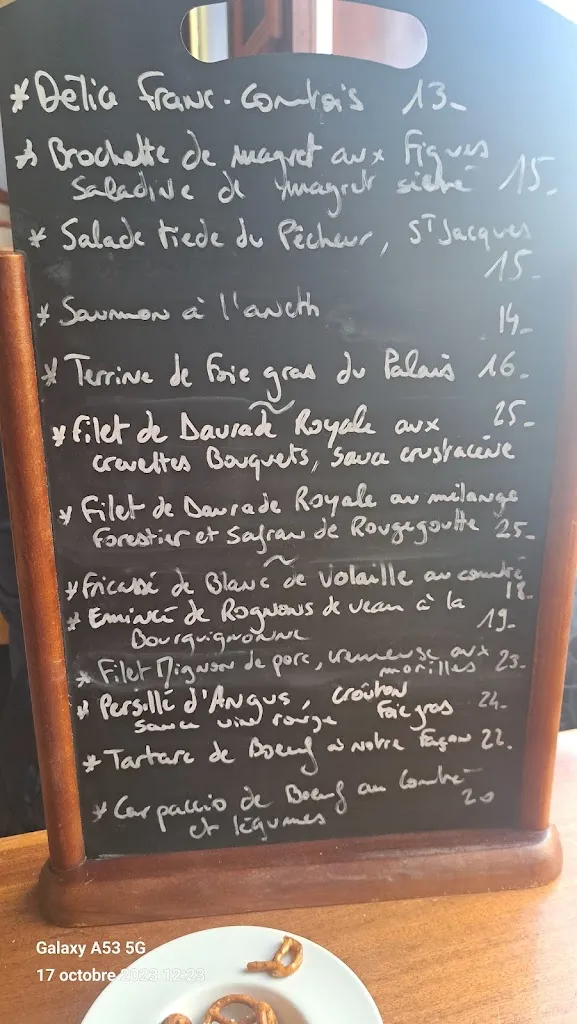 * Délice Franc-Comtois 13-
* Brochette de magret aux Figues
Saladine de magret séché 15-
* Salade tiède du Pêcheur, ST Jacques
15-
* Saumon à l'aneth 14-
* Terrine de Foie gras du Palais 16-
~
* Filet de Daurade Royale aux 25-
crevettes Bouquets, Sauce crustacée
* Filet de Daurade Royale au mélange
Forestier et Safran de Rougegoutte 25-
~
* Fricassé de Blanc de Volaille au comté
18-
* Emincé de Rognons de veau à la 19-
Bourguignonne
* Filet Mignon de porc, cremeuse aux
morilles 23-
* Persillé d'Angus, croûton 24-
sauce vin rouge Foie gras
* Tartare de Boeuf à Notre Façon 22.
* Carpaccio de Boeuf au Comté
et légumes 20
Galaxy A53 5G
17 octobre 2023 12:23